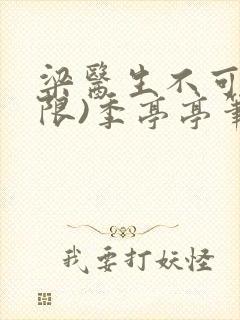 梁醫生不可
限)季亭亭筆
我要打妖怪